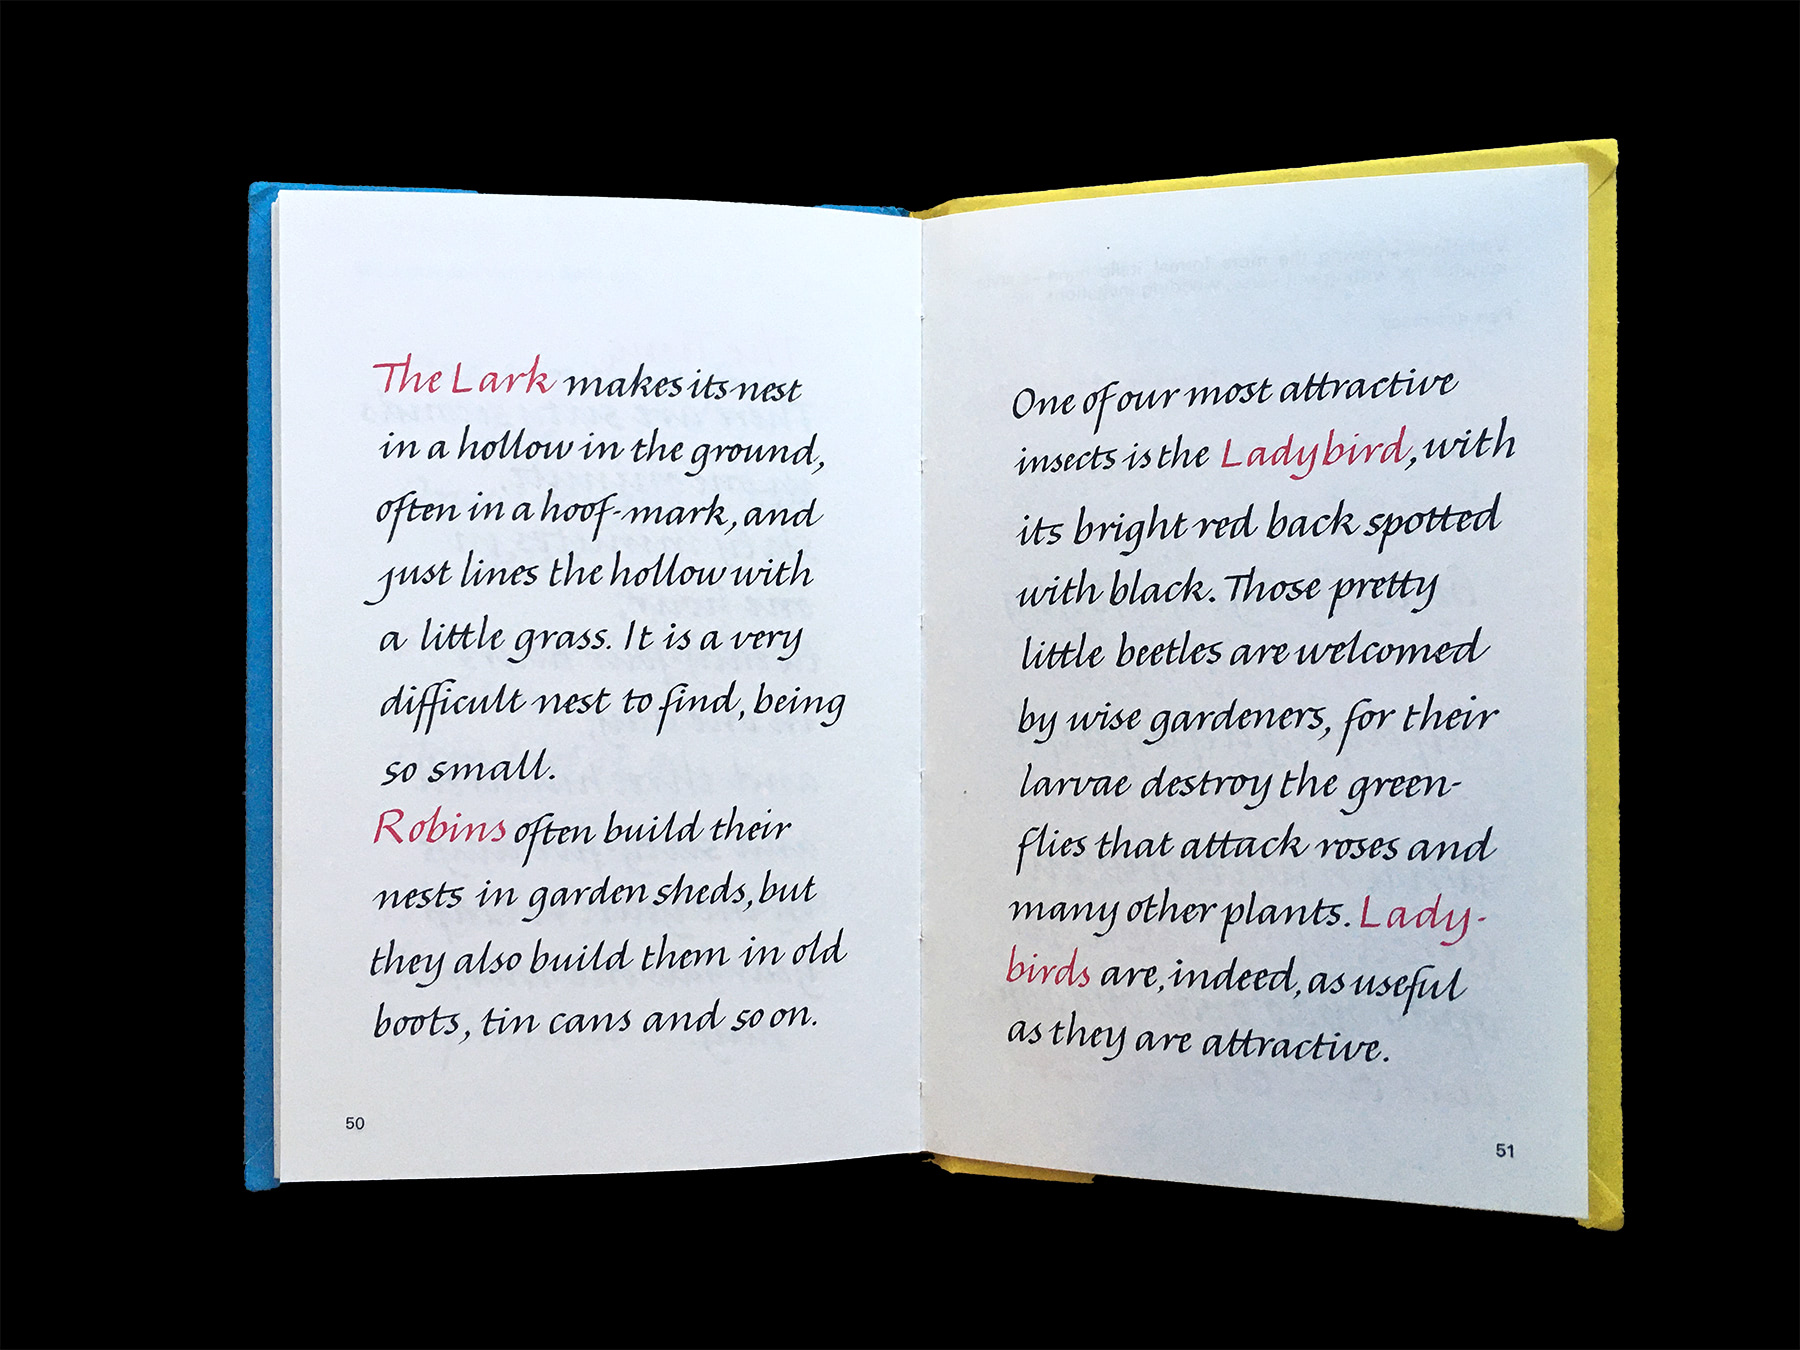 The Lark makes its nest
in a hollow in the ground,
often in a hoof-mark, and
just lines the hollow with
a little grass. It is a very
difficult nest to find, being
so small.
Robins often build their
nests in garden sheds, but
they also build them in old
boots, tin cans and so on.
50
One of our most attractive
insects is the Ladybird, with
its bright red back spotted
with black. Those pretty
little beetles are welcomed
by wise gardeners, for their
larvae destroy the green-
flies that attack roses and
many other plants. Lady-
birds are, indeed, as useful
as they are attractive.
51